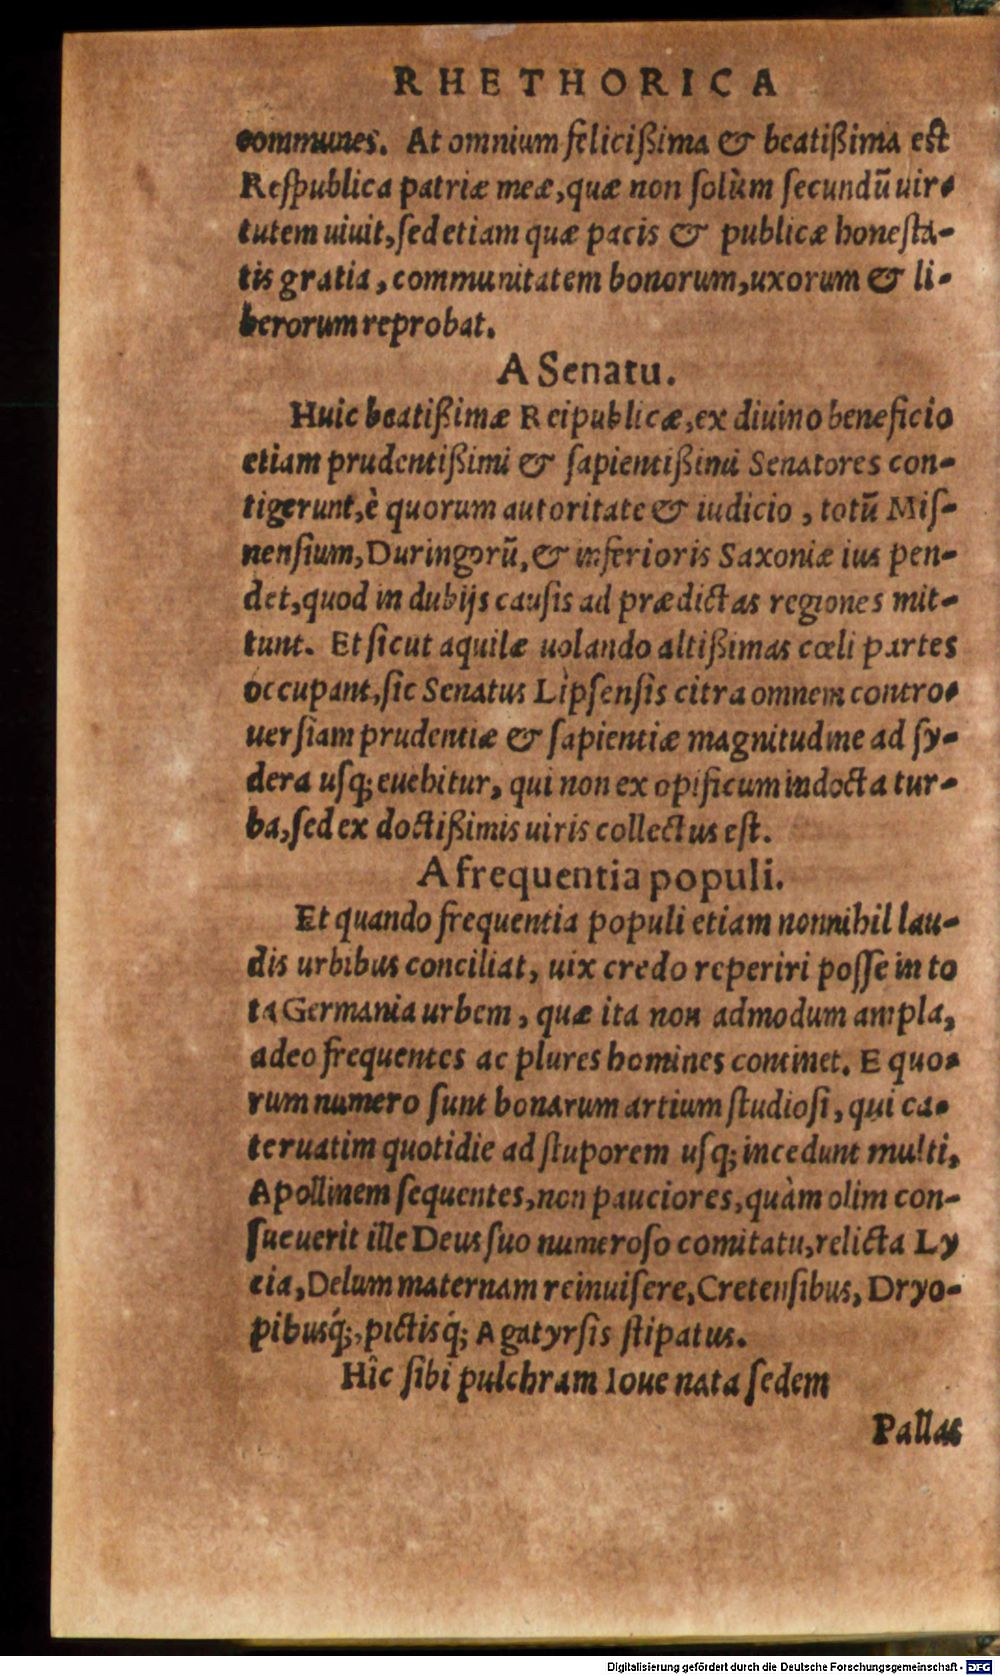 RHETHORICA
communes. At omnium felicißima & beatißima est
Respublica patriæ meæ, quæ non solùm secundũ uir-
tutem uiuit, sed etiam quæ pacis & publicæ honesta-
tis gratia, communitatem bonorum, uxorum & li-
berorum reprobat.
A Senatu.
Huic beatißimæ Reipublicæ, ex diuino beneficio
etiam prudentißimi & sapientißimi Senatores con-
tigerunt, è quorum autoritate & iudicio, totũ Mis-
nensium, Duringorũ, & inferioris Saxoniæ ius pen-
det, quod in dubijs causis ad prædictas regiones mit-
tunt. Et sicut aquilæ uolando altißimas cœli partes
occupant, sic Senatus Lipsensis citra omnem contro-
uersiam prudentiæ & sapientiæ magnitudine ad sy-
dera usq; euehitur, qui non ex opificum indocta tur-
ba, sed ex doctißimis uiris collectus est.
A frequentia populi.
Et quando frequentia populi etiam nonnihil lau-
dis urbibus conciliat, uix credo reperiri posse in to
ta Germania urbem, quæ ita non admodum ampla,
adeo frequentes ac plures homines continet. E quo-
rum numero sunt bonarum artium studiosi, qui ca-
teruatim quotidie ad stuporem usq; incedunt multi,
Apollinem sequentes, non pauciores, quàm olim con-
sueuerit ille Deus suo numeroso comitatu, relicta Ly
cia, Delum maternam reinuisere, Cretensibus, Dryo-
pibusq́;, pictisq́; Agatyrsis stipatus.
Hîc sibi pulchram Ioue nata sedem
Pallas
Digitalisierung gefördert durch die Deutsche Forschungsgemeinschaft - DFG